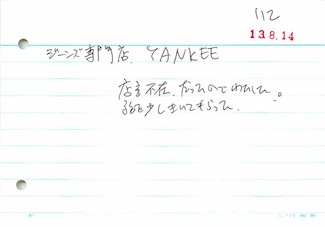 112
13.8.14
ジーンズ専門店. YANKEE
店主不在. だったのでわたした。
話を少しきいてもらった.